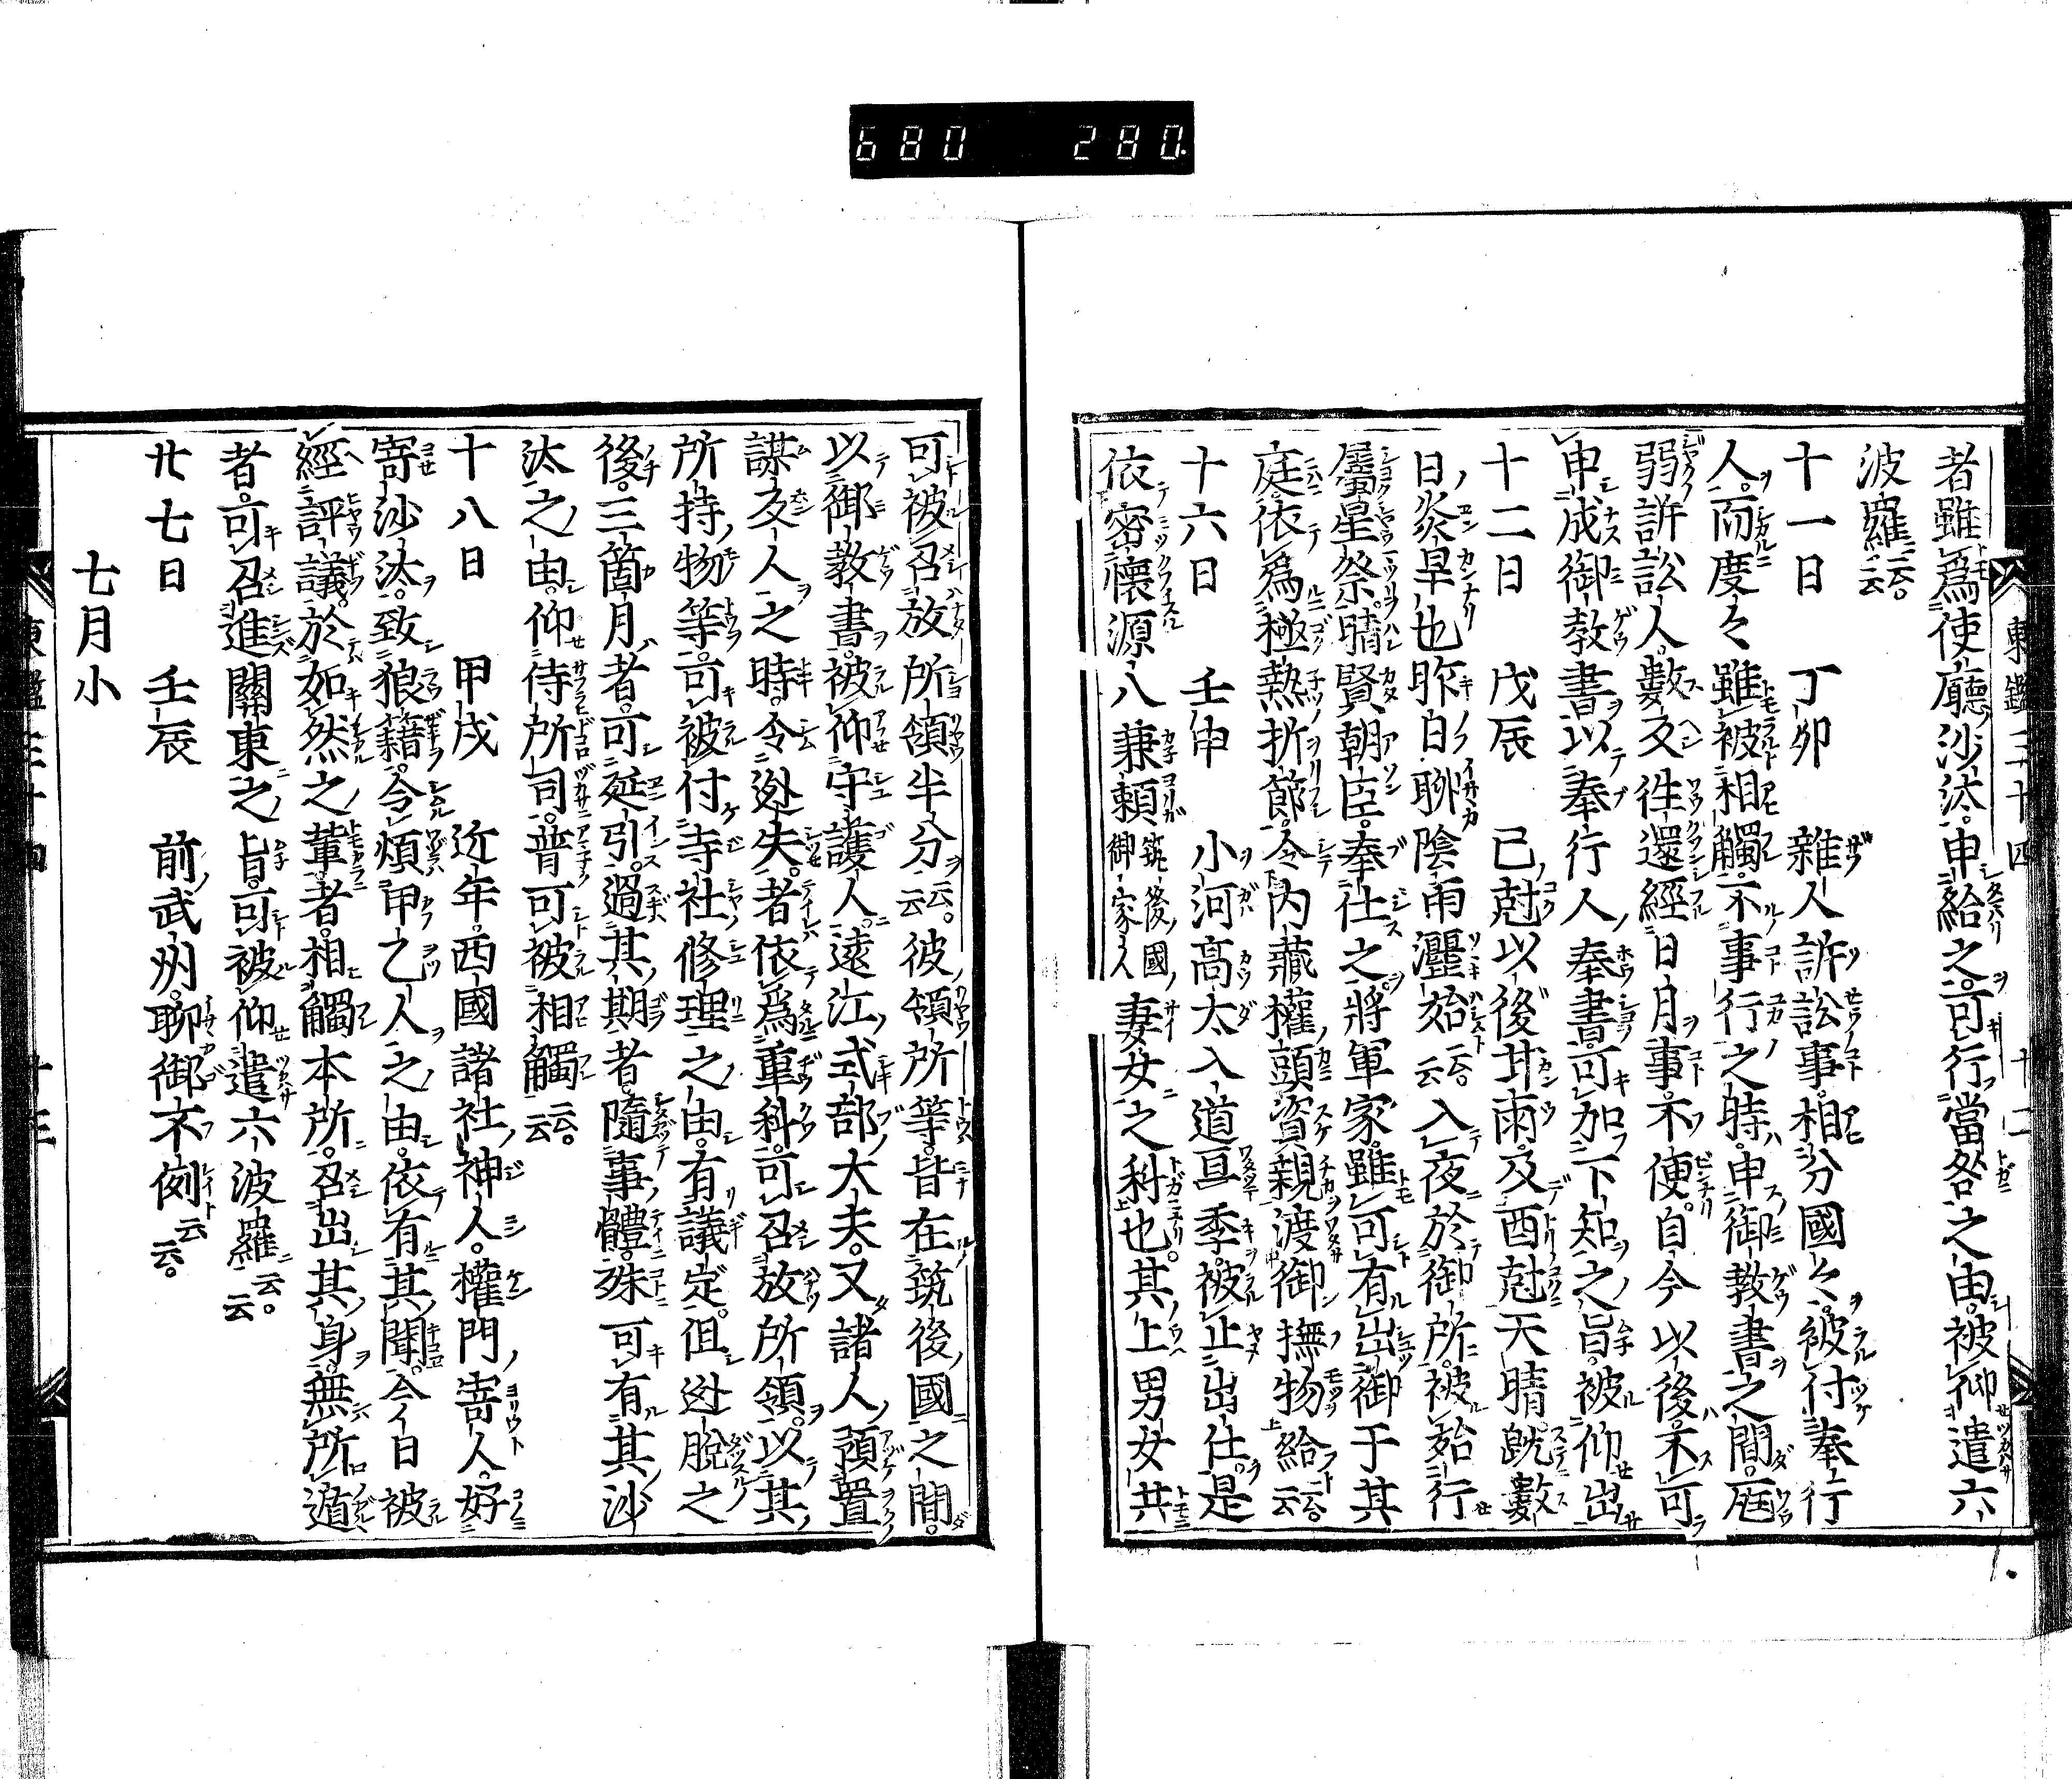 680 280
者雖爲使廳沙汰。申給之。可行當咎之由。被仰遣六
波羅云云。
十一日 丁卯 雜人訴訟事。相分國々。被付奉行
人。而度々雖被相觸。不事行之時。申御教書之間。尫
弱訴訟人。數反往還經日月事。不便。自今以後。不可
申成御教書。以奉行人奉書。可加下知之旨。被仰出
十二日 戊辰 已尅以後甘雨。及酉尅天晴。旣數
日炎旱也。昨日聊陰雨灑始云云。入夜於御所。被始行
屬星祭。晴賢朝臣。奉仕之。將軍家。雖可有出御于其
庭。依爲極熱折節。令內藏權頭資親渡御撫物給云云。
十六日 壬申 小河高太入道直季。被止出仕。是
依密懷源八兼賴筑後國御家人妻女之科也。其上男女共
可被召放所領半分云云。彼領所等。皆在筑後國之間。
以御教書。被仰守護人。遠江式部大夫。又諸人預置
謀反人之時。令逃失。者依爲重科。可召放所領。以其
所持物等。可被付寺社修理之由。有議定。但逃脫之
後。三箇月。者。可延引。過其期者。隨事體。殊可有其沙
汰之由。仰侍所司。普可被相觸云云。
十八日 甲戌 近年。西國諸社神人。權門寄人。好
寄沙汰。致狼藉。令煩甲乙人之由。依有其聞。今日被
經評議。於如然之輩者。相觸本所。召出其身。無所遁
者。可召進關東之旨。可被仰遣六波羅云云。
廿七日 壬辰 前武州。聊御不例云云。
七月小